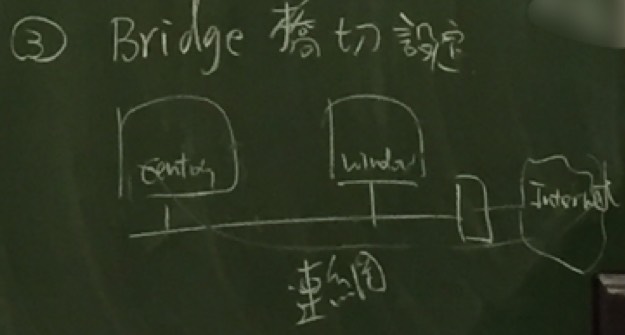 ③ Bridge 橋切設定
centos
window
Internet
連網